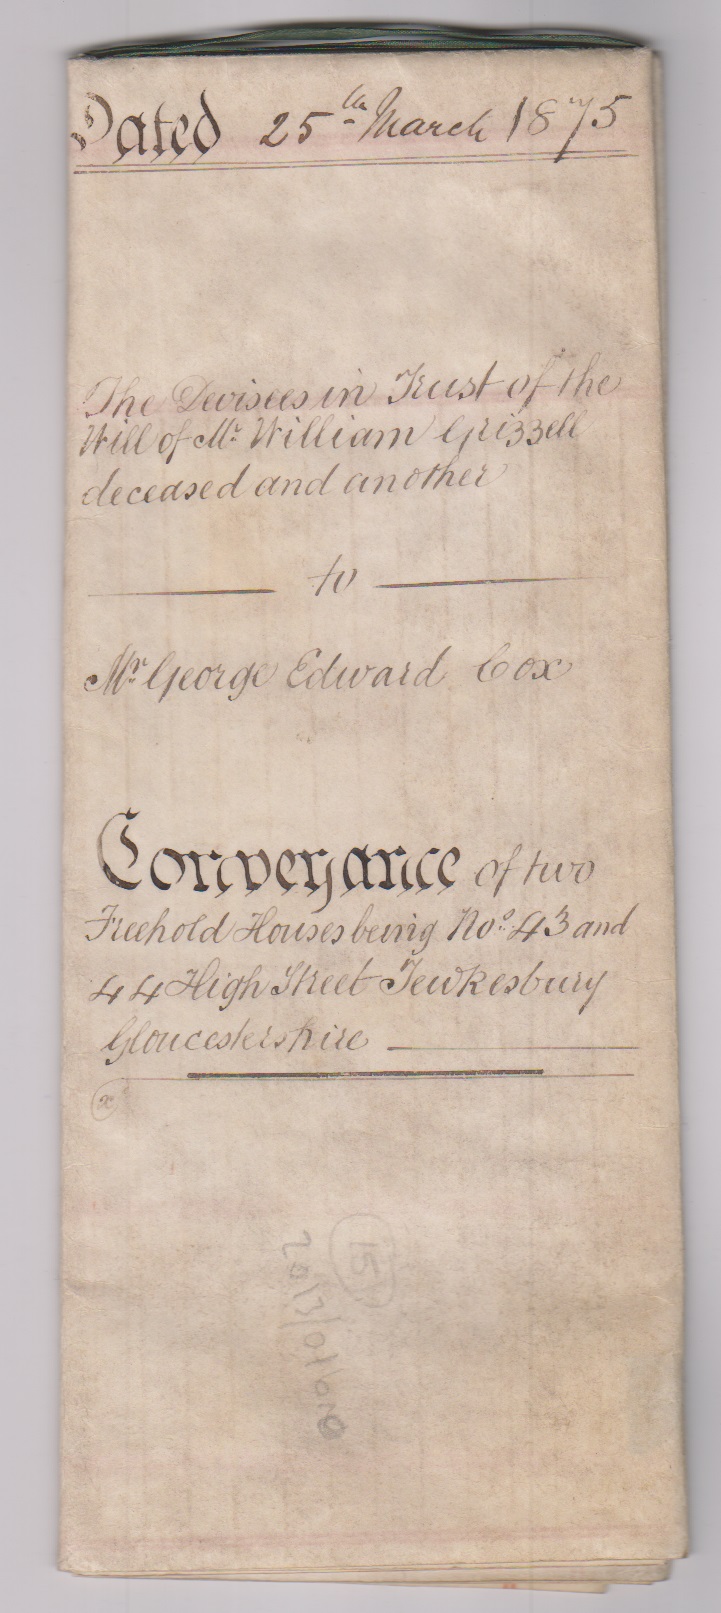 Dated 25th March 1875
The Devisees in Trust of the
Will of Mr William Grizzell
deceased and another
to
Mr George Edward Cox
Conveyance of two
Freehold Houses being Nos. 43 and
44 High Street Tewkesbury
Gloucestershire
15